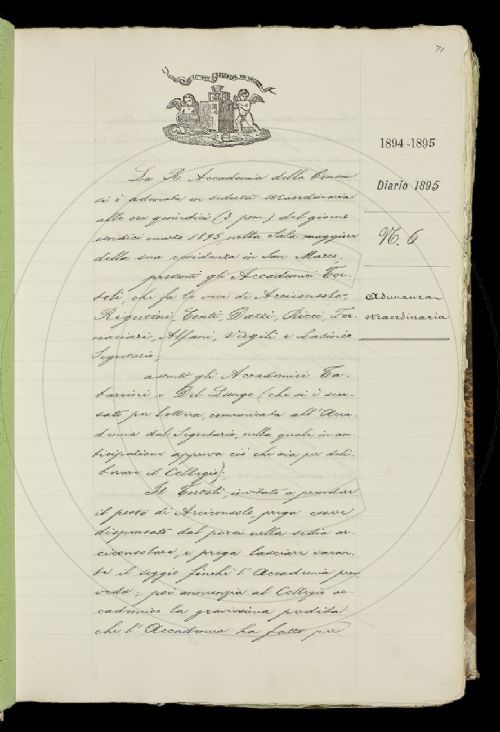 71
IL PIÙ BEL FIOR NE COGLIE
1894-1895
Diario 1895
N. 6
Adunanza
straordinaria
La R. Accademia della Crusca
si è adunata in seduta straordinaria
alle ore quindici (3 pom.) del giorno
sedici marzo 1895, nella Sala maggiore
della sua residenza in San Marco;
presenti gli Accademici Tor-
toli, che fa le veci di Arciconsolo,
Rigutini, Conti, Dazzi, Ricci, For-
naciari, Alfani, Virgili e
Segretario;
assenti gli Accademici Ta-
barrini e Del Lungo (che si è scu-
sato per lettera, comunicata all'Acca-
demia dal Segretario, nella quale in an-
ticipazione approva ciò che sia per deli-
berare il Collegio).
Il Tortoli, invitato a prendere
il posto di Arciconsolo, prega essere
dispensato dal porsi nella sedia ar-
ciconsolare, e prega lasciare vacan-
te il seggio finchè l'Accademia prov
veda; poi annunzia al Collegio ac-
cademico la gravissima perdita
che l'Accademia ha fatto per